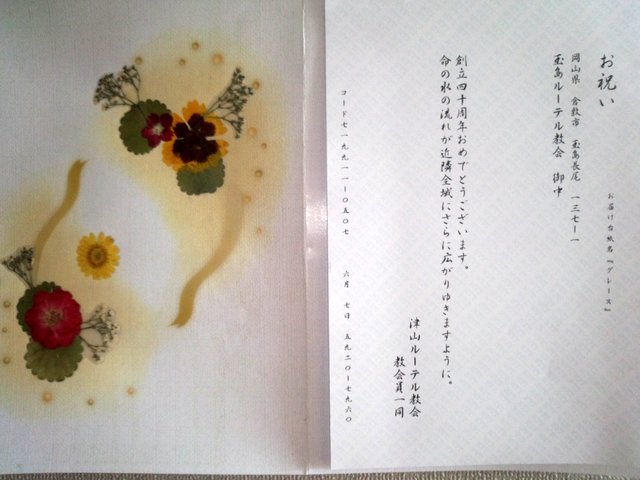 お祝い
お届け台紙名『グレース』
岡山県 倉敷市 玉島長尾 一三七ー一
玉島ルーテル教会 御中
創立四十周年おめでとうございます。
命の水の流れが近隣全域にさらに広がりゆきますように。
津山ルーテル教会
教会員一同
コード七一九九一一ー〇五〇七 六月 七日 五九二〇ー七九六〇